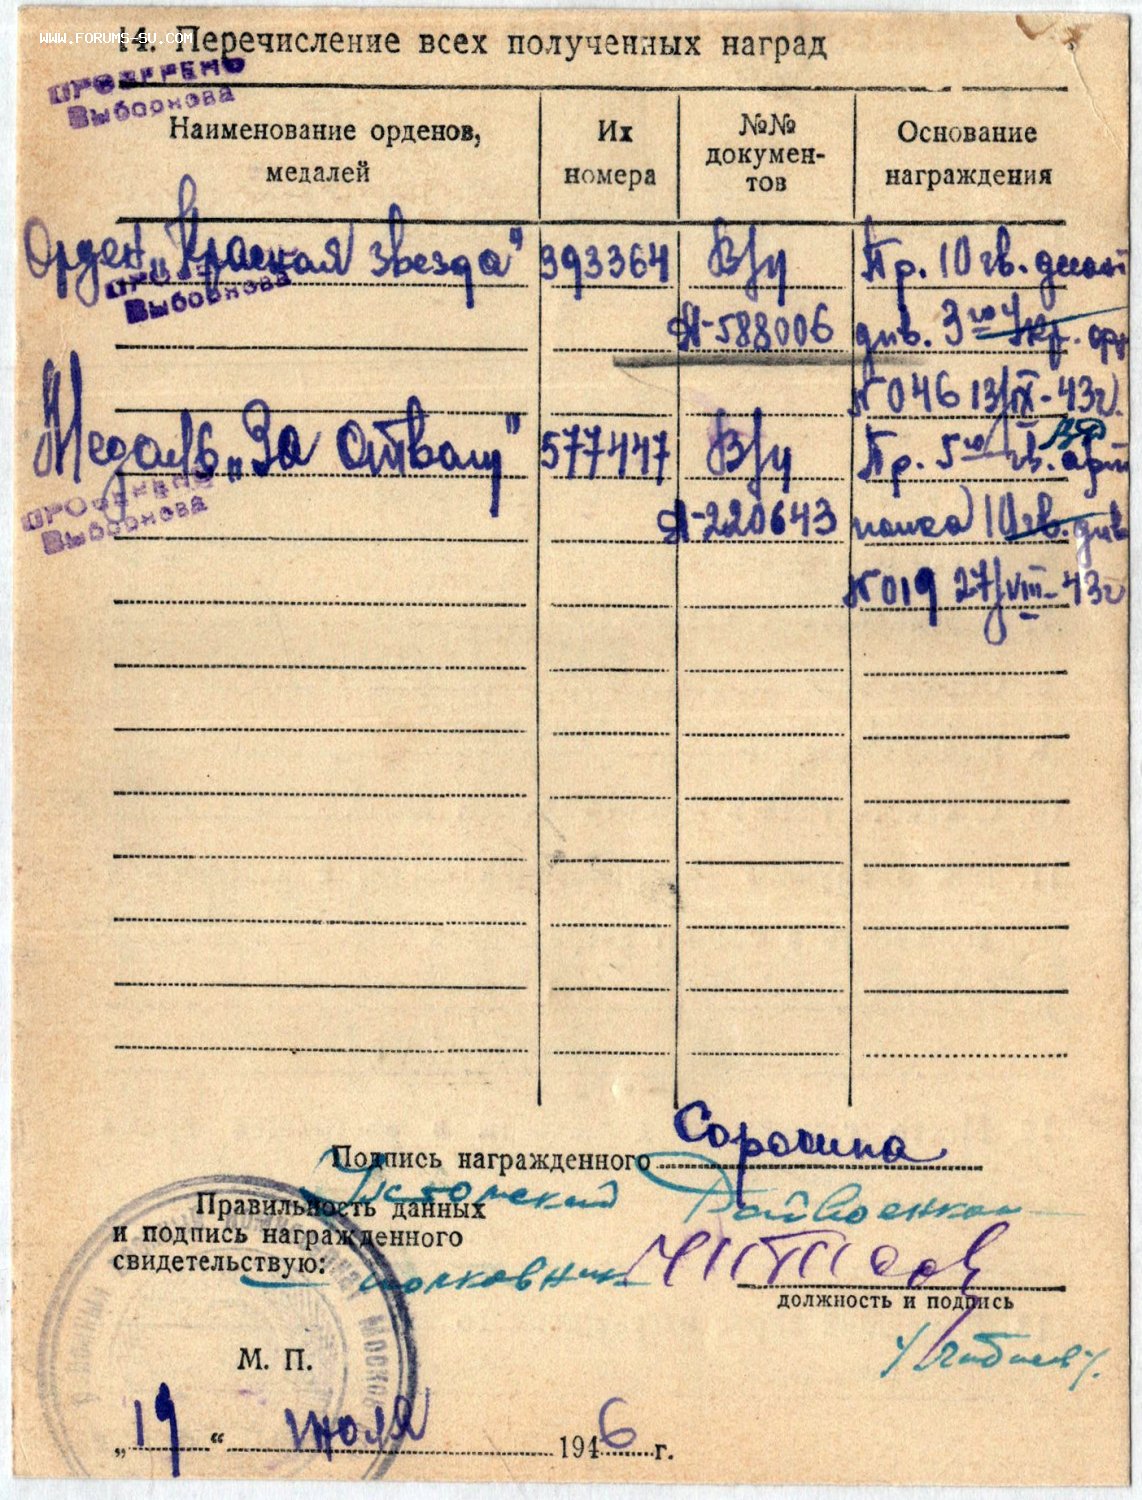 WWW.FORUMS-SU.COM
14. Перечисление всех полученных наград
ПРОВЕРЕНО
Выборнова
Наименование орденов,
медалей
Их
номера
№№
докумен-
тов
Основание
награждения
Орден „Красная звезда" 393364 В/у Пр. 10 гв.
ПРОВЕРЕНО
Выборнова
А-588006 див. 3го Укр.
N 046 13/IX-43г.
Медаль „За Отвагу" 577447 В/у Пр. 5го гв. арт
ПРОВЕРЕНО
Выборнова
А-220643 полка 10 гв. див
N 019 27/VIII-43г
Подпись награжденного Сорокина
Правильность данных
и подпись награжденного
свидетельствую:
Райвоенком
полковник
должность и подпись
М. П.
„19“ июля 1946 г.